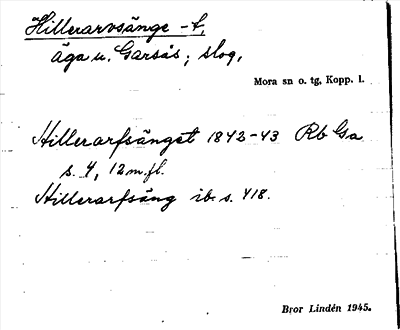 Hillerarvsänge -t,
äga u. Garsås; slog,
Mora sn o. tg, Kopp. l.
Hillerarfsänget 1842-43 Rb Ga
s. 4, 12 m.fl.
Hillerarfsäng ib. s. 418.
Bror Lindén 1945.